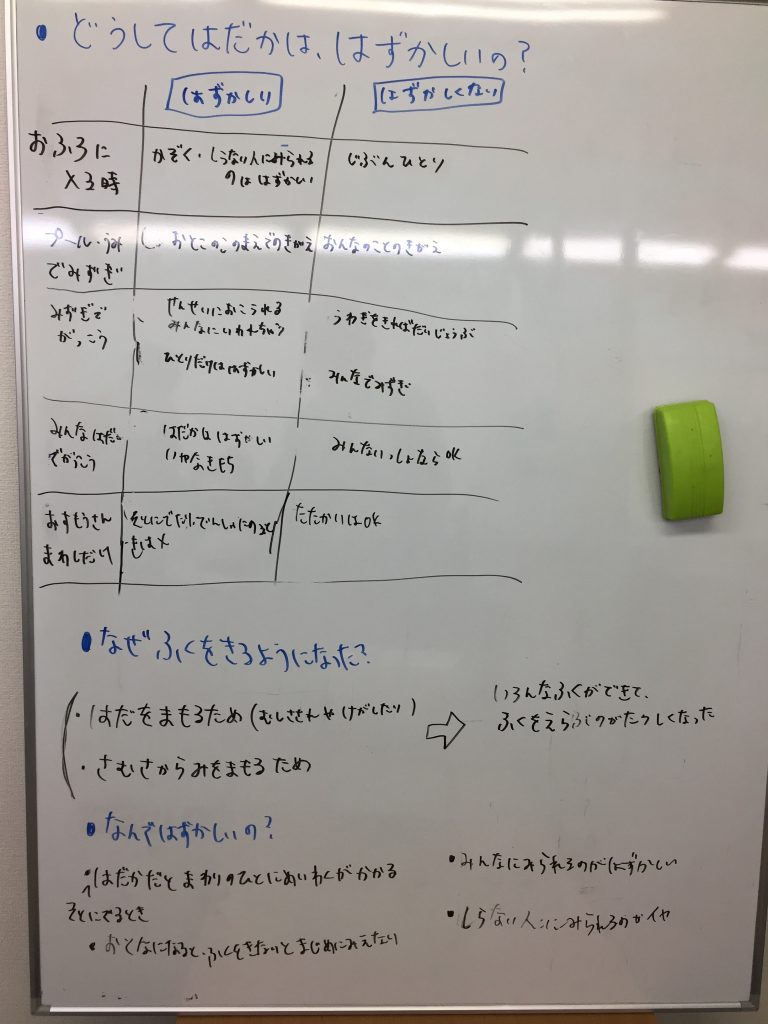 • どうしてはだかは、はずかしいの?
はずかしい
はずかしくない
おふろに
入る時
かぞく・しらない人にみられる
のははずかい
じぶんひとり
プール・うみ
でみずぎ
おとこのこのまえでのきがえ
おんなのことのきがえ
みずぎで
がっこう
せんせいにおこられる
みんなにいわれちゃう
ひとりだけははずかしい
うわぎをきればだいじょうぶ
みんなでみずぎ
みんなはだか
でがっこう
はだかははずかしい
いやなきもち
みんないっしょならOK
おすもうさん
まわしだけ
たたかいはOK
• なぜふくをきるようになった?
・はだをまもるため(むしさされやけがしたり)
・さむさからみをまもるため
いろんなふくができて、
ふくをえらぶのがたのしくなった
• なんではずかしいの?
・はだかだとまわりのひとにめいわくがかかる
そとにでるとき
• おとなになると、ふくをきないとまじめにみえない
• みんなにみられるのがはずかしい
• しらない人にみられるのがイヤ